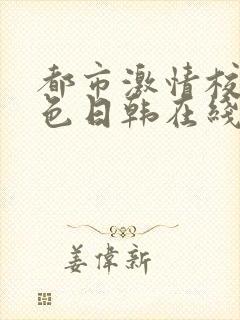 都市激情校
色日韩在线
姜偉新